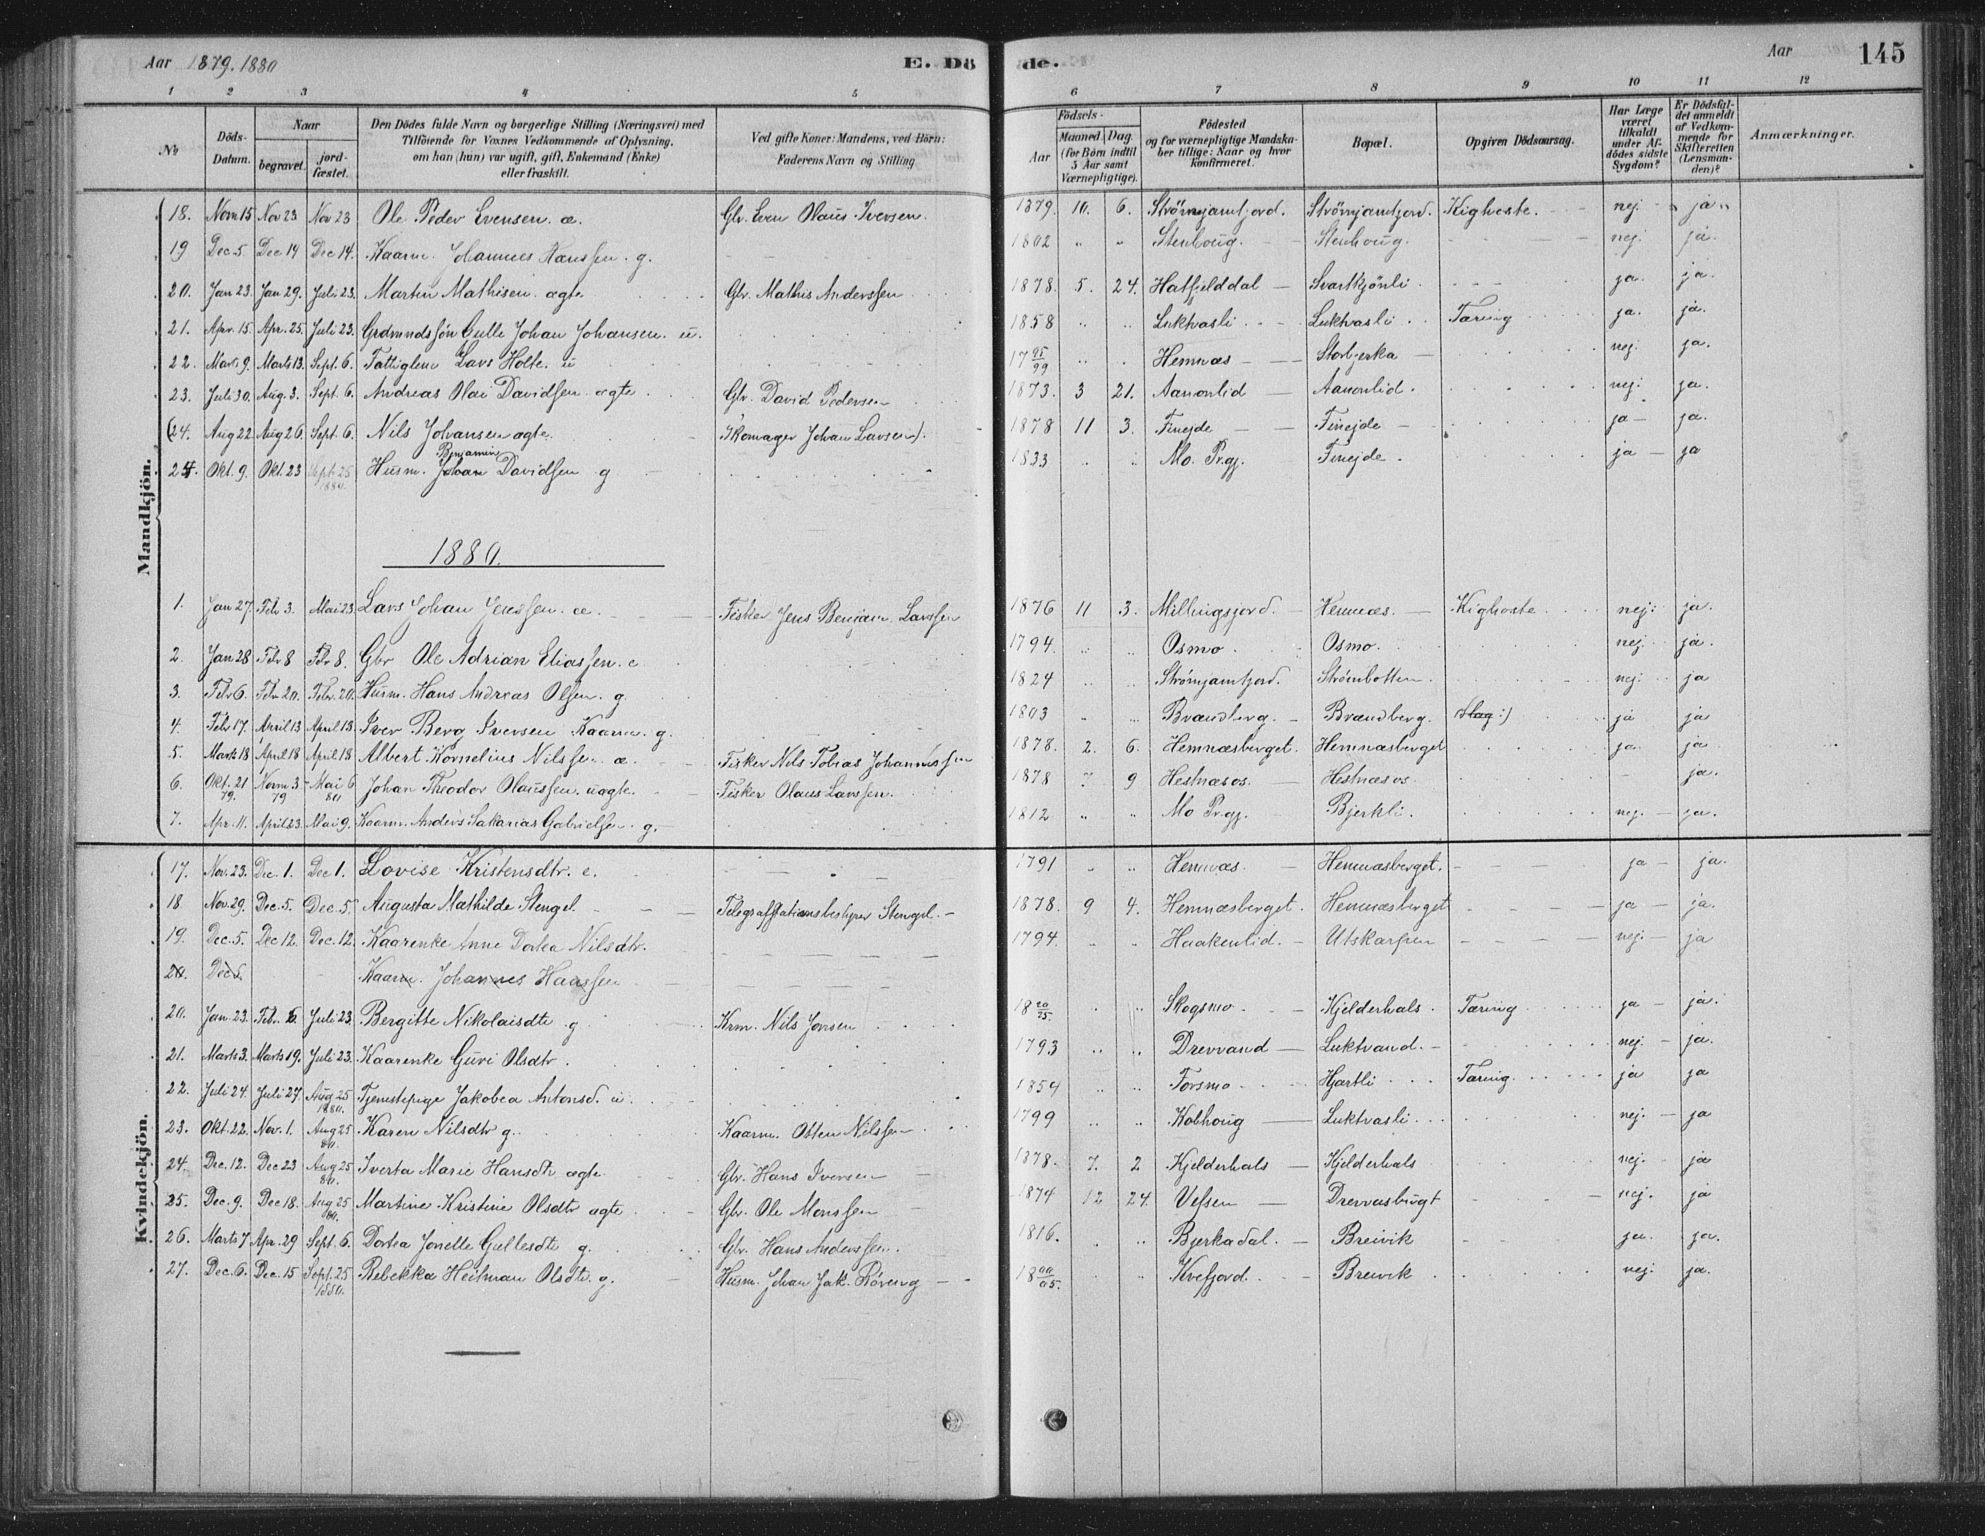 Aar 1879. 1880 E. Döde. Aar 145
1 2 3 4 5 6 7 8 9 10 11 12
No Döds-Datum. Naar begravet. jordfæstet. Den Dödes fulde Navn og borgerlige Stilling (Næringsvei) med Tilföiende for Voxnes Vedkommende af Oplysning, om han (hun) var ugift, gift, Enkemand (Enke) eller fraskilt. Ved gifte Koner: Mandens, ved Börn: Faderens Navn og Stilling Födsels- Aar Maaned. Dag. (for Börn indtil 5 Aar samt Værnepligtige). Födested og for værnepligtige Mandskaber tillige: Naar og hvor konfirmeret. Bopæl. Opgiven Dödsaarsag. Har Læge været tilkaldt under Afdödes sidste Sygdom? Er Dödsfaldet anmeldt af Vedkommende for Skifteretten (Lensmanden)? Anmærkninger.
Mandkjön.
18. Novm 15 Nov 23 Nov 23 Ole Peder Evensen. æ. Gbr. Even Olaus Iversen. 1879. 10. 6. Strömjamfjord. Strömjamfjord. Kighoste. nej ja
19 Dec. 5 Dec 14 Dec 14. Kaarm. Johannes Hanssen. g. 1802 " " Stenhoug. Stenhoug. nej. ja.
20. Jan 23. Jan 29. Juli 23. Martin Mathisen ægte Gbr. Mathis Anderssen 1878. 5. 24. Hatfjelddal Svartkjönli ja. ja.
21. Apr. 15 Apr. 25. Juli 23. Grdmandssön Gulle Johan Johansen. u. 1858 " " Luktvasli Luktvasli Tæring ja. ja.
22. Marts 9. Marts 13. Sept. 6. Fattiglem Lars Holte. u 17 95/99 " . Hemnæs Storbjerka nej. ja.
23. Juli 30. Aug. 3. Sept. 6. Andreas Olai Davidsen ægte Gbr. David Pedersen 1873. 3 21. Aanonlid Aanonlid. nej. ja.
(24. Aug 22 Aug 26. Sept. 6. Nils Johansen ægte. Skomager Johan Larsen). 1878 11 3. Finejde Finejde ja ja.
24. Okt. 9. Okt. 23 Sept. 25 1880. Husm. Johan Benjamin Davidsen g 1833 " " Mo Prgj. Finejde. ja ja
1880.
1. Jan 27. Feb 3. Mai 23. Lars Johan Jenssen. æ. Fisker Jens Benjam. Larssen 1876 11 3. Millingsfjord. Hemnæs. Kighoste nej. ja.
2. Jan 28 Feb 8 Feb 8. Gbr Ole Adrian Eliassen. e 1794. " " Osmo Osmo. nej. ja.
3. Feb 6. Feb 20. Feb. 20. Husm. Hans Andreas Olsen. g. 1824 " " Strömjamfjord. Strömbotten nej. ja
4. Feb 17. April 13 April 13. Iver Berg Iversen Kaarm. g. 1803 " " Brændberg. Brændberg. Slag:) ja ja
5. Marts 18 April 18 April 18 Albert Kornelius Nilssen æ Fisker Nils Tobias Johannessen 1878. 2. 6. Hemnæsberget. Hemnæsberget ja. ja
6. Okt. 21 79. Novm 3 79 Mai 6 80 Johan Theodor Olaussen. uægte. Fisker Olaus Larssen. 1878 7 9 Hestnæsos. Hestnæsos ja.
7. Apr. 11. April 23. Mai 9. Kaarm. Anders Sakarias Gabrielsen. g. 1812 " " Mo Prgj. Bjerkli. nej. ja.
Kvindekjön.
17. Nov. 23. Dec. 1. Dec 1. Lovise Kristensdtr. e. 1791 " " Hemnæs. Hemnæsberget. ja ja.
18. Nov. 29. Dec. 5. Dec. 5. Augusta Mathilde Stengel Telegrafstationsbestyrer Stengel. 1878. 9 4. Hemnæsberget. Hemnæsberget ja ja.
19. Dec. 5. Dec 12. Dec. 12. Kaarenke Anne Dorthea Nilsdtr. 1794. " " Haakenlid. Utskarpen nej ja
20. Dec 5. Kaarm. Johannes Hanssen
20. Jan. 23. Feb. 6. Juli 23. Bergitte Nikolaisdtr g Krm. Nils Jonsen 18 20/25. " " Skogsmo Kjelderhals. Tæring ja ja.
21. Marts 3. Marts 19. Juli 23. Kaarenke Guri Olsdtr. 1793 " " Drevvand Luktvand. nej. ja.
22. Juli 24. Juli 27. Aug 25 1880. Tjenestepige Jakobea Antonsd. u 1859 " " Forsmo Hjartli Tæring ja ja
23. Okt. 22. Nov. 1. Aug 25 80. Karen Nilsdtr g. Kaarm. Otten Nilssen 1799 " " Kobhoug Luktvasli nej. ja
24. Dec. 12. Dec 23 Aug 25 80. Iverta Marie Hansdtr ægte Gbr. Hans Iversen 1878. 7. 2 Kjelderhals Kjelderhals nej. ja
25. Dec. 9. Dec 18. Aug 25 80. Martine Kristine Olsdtr ægte Gbr. Ole Monssen 1874 12 24. Vefsen Drevvasbugt nej. ja
26. Marts 7 Apr. 29 Sept. 6. Dortea Jonelle Gullesdtr g. Gbr. Hans Anderssen. 1816. " " Bjerkadal. Breivik ja. ja.
27. Dec. 6. Dec. 15 Sept. 25 1880. Rebekka Heitman Olsdtr. g. Husm. Johan Jak. Röreng 18 00/05. " " Kvefjord. Breivik nej. ja.